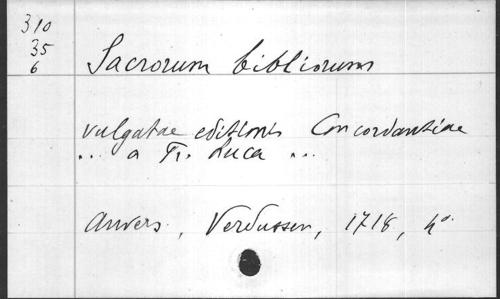 310
35
6
Sacrorum bibliorum
vulgatae editionis Concordantiae
... a Fr. Luca ...
Anvers, Verdussen, 1718, 4o.